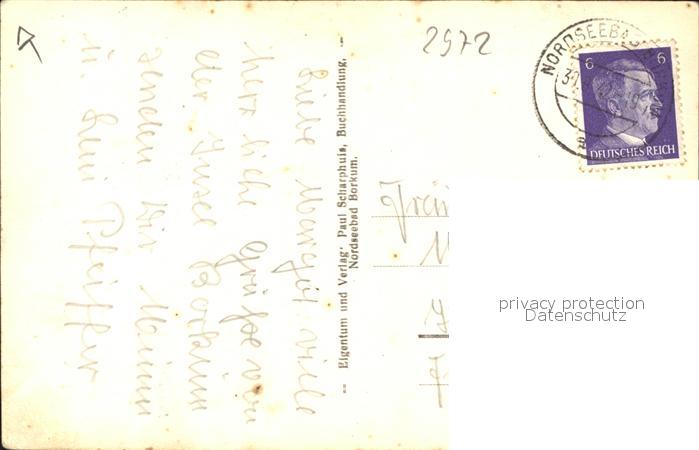 2972
NORDSEEBAD
6 6
DEUTSCHES REICH
Liebe Margot viele
herzliche Grüße von
der Insel Borkum
senden Dir Mimi
u. Leni Pfeiffer
-- Eigentum und Verlag: Paul Scharphuis, Buchhandlung, --
Nordseebad Borkum.
privacy protection
Datenschutz